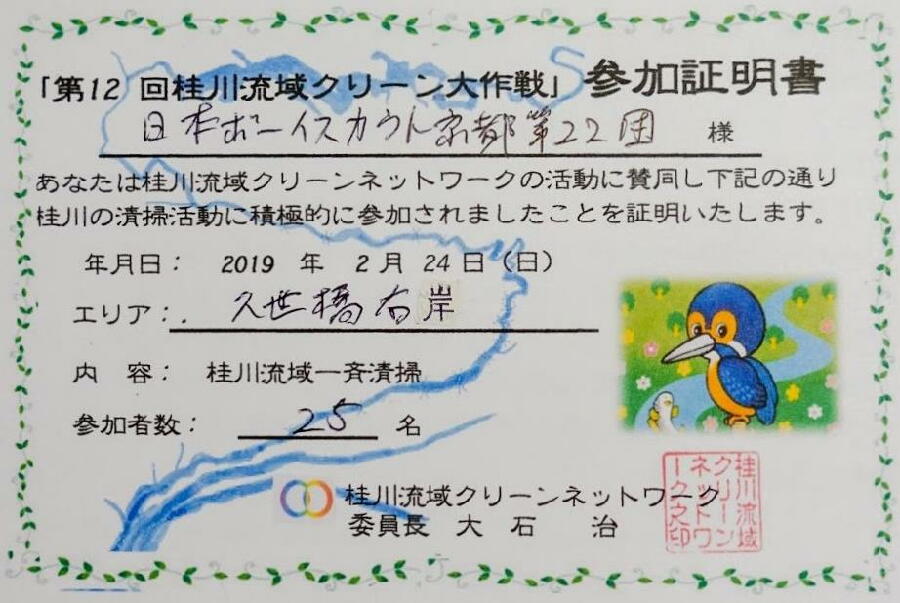 「第12 回桂川流域クリーン大作戦」参加証明書
日本ボーイスカウト京都第22団 様
あなたは桂川流域クリーンネットワークの活動に賛同し下記の通り
桂川の清掃活動に積極的に参加されましたことを証明いたします。
年月日： 2019 年 2 月 24 日（日）
エリア：. 久世橋右岸
内 容： 桂川流域一斉清掃
参加者数： 25 名
桂川流域クリーンネットワーク
委員長 大 石 治
桂川流域
クリーン
ネットワ
ーク之印